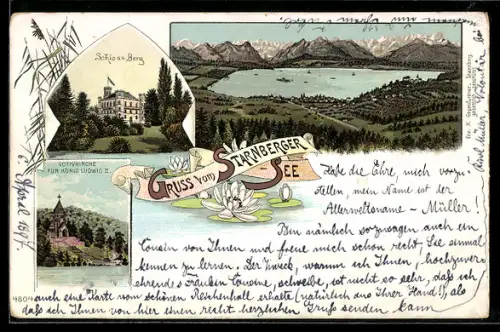 Schloss Berg
VOTIVKIRCHE
FÜR KÖNIG LUDWIG II.
GRUSS VOM STARNBERGER SEE
6. April 1897.
Habe die Ehre, mich vorzu-
stellen, mein Name ist der
Allerweltsname – Müller!
Bin nämlich sozusagen auch ein
Cousin von Ihnen und freue mich schon recht, Sie einmal
kennen zu lernen. Der Zweck, warum ich Ihnen, hochzuver-
ehrendes Fräulein Cousine, schreibe, ist nicht so sehr, daß ich
auch eine Karte vom schönen Reichenhall erhalte (natürlich aus Ihrer Hand!), als
daß ich Ihnen von hier einen recht herzlichen Gruß senden kann
Karl Müller, Volontär bei